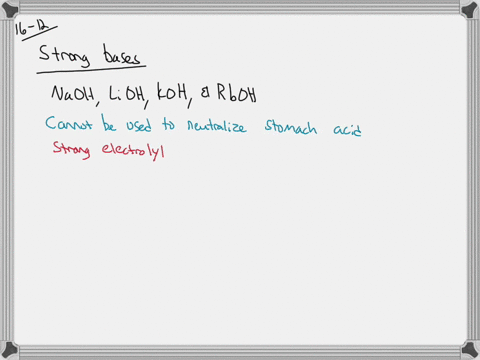 16-12
Strong bases
NaOH, LiOH, KOH, & RbOH
Cannot be used to neutralize stomach acid
Strong electrolyl